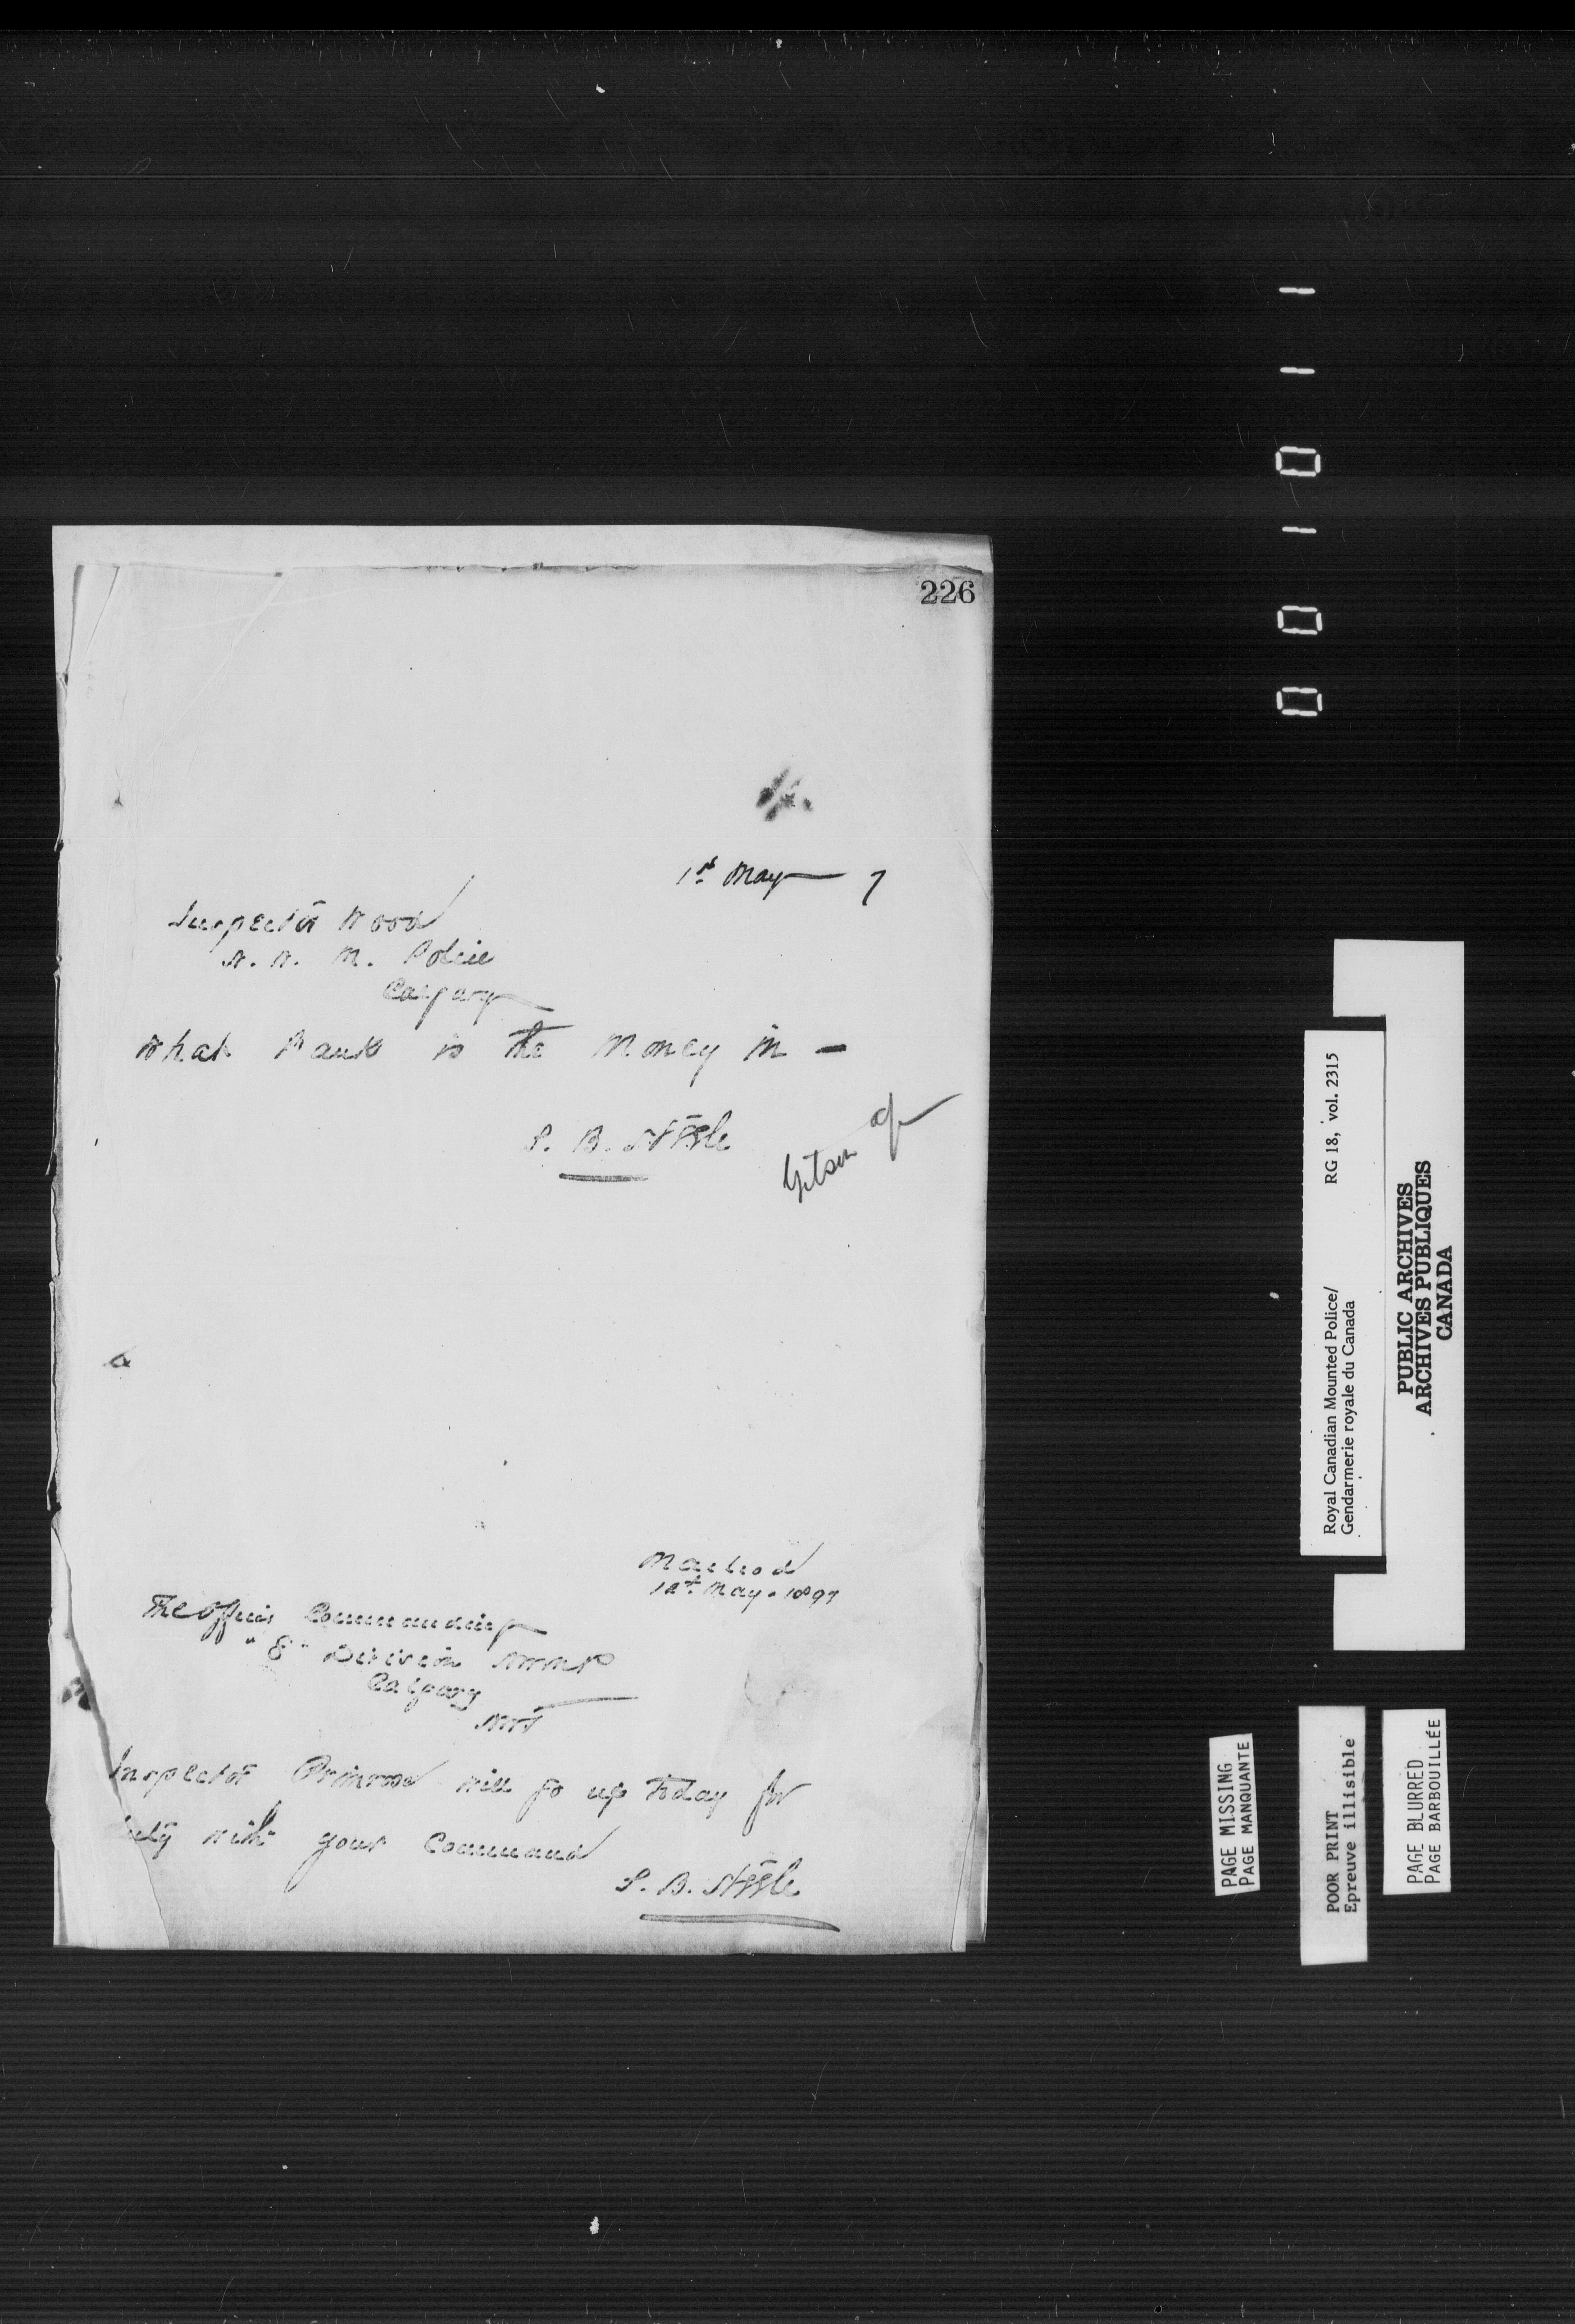 226
1st May 7
Inspector Wood
N. W. M. Police
Calgary
What Bank is the Money in -
S. B. Steele
Macleod
1st May. 1897
The Officer Commanding
"E" Division NWMP
Calgary
NWT
Inspector Primrose will go up today for
duty with your Command
S. B. Steele
001011
Royal Canadian Mounted Police/
Gendarmerie royale du Canada
RG 18, vol. 2315
PUBLIC ARCHIVES
ARCHIVES PUBLIQUES
CANADA
PAGE MISSING
PAGE MANQUANTE
POOR PRINT
Epreuve illisible
PAGE BLURRED
PAGE BARBOUILLÉE